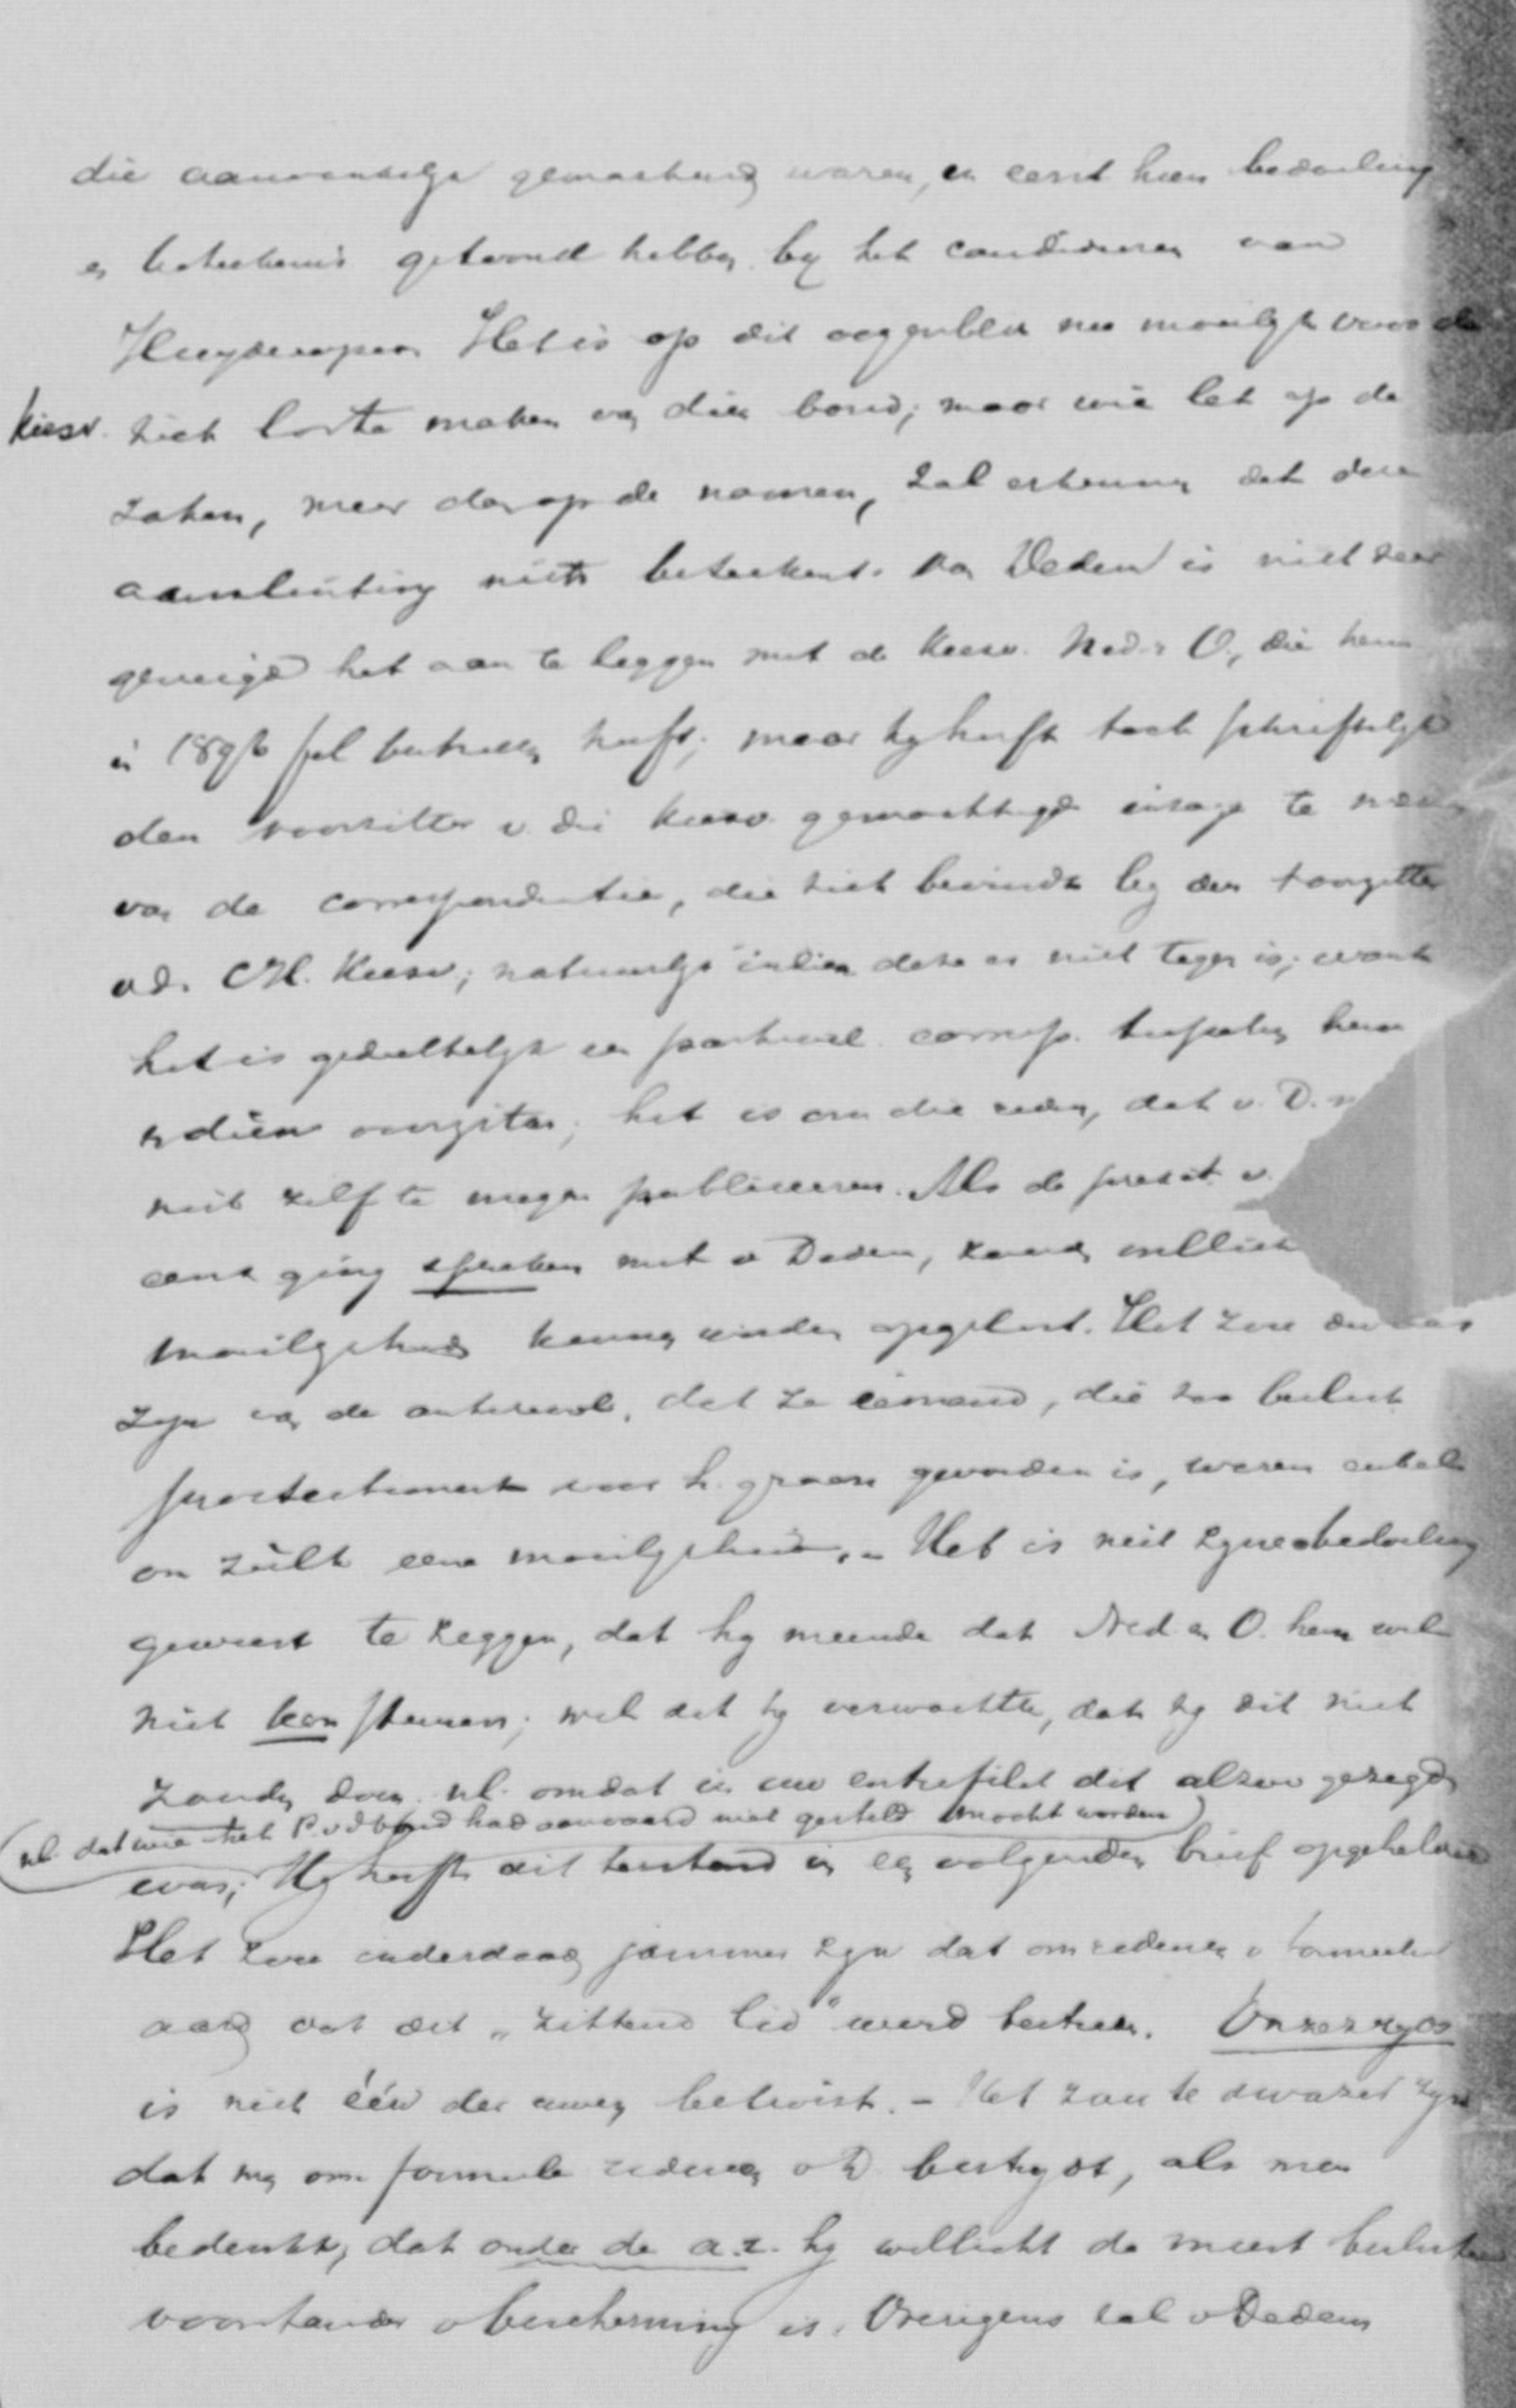 die aanvankelijk gemachtend waren, en eerst hun bedoeling
en beteekenis getoond hebben by het candideeren van
Huydecoper. Het is op dit oogenblik nu moeilyk voor de
kiesv. zich los te maken van dien bond; maar wie let op de
zaken, meer dan op de namen, zal erkennen dat deze
aansluiting niets beteekent. Van Dedem is niet zeer
geneigd het aan te leggen met de kiesv. Ned. en O., die hem
in 1896 fel bestreden heeft; maar hy heeft toch schriftelyk
den voorzitter v. die kiesv. gemachtigd inzage te nemen
van de correspondentie, die zich bevindt by den voorzitter
v.d. CH. Kiesv; natuurlyk indien deze er niet tegen is; want
het is gedeeltelyk een particul. corresp. tusschen hem
en dien voorzitter; het is om die reden, dat v. D.
niet zelf te mogen publiceeren. Als de presid. v.
eens ging spreken met v Dedem, zou wellicht
moeilykheid kunnen worden opgelost. Het zou dwaas
zyn van de antirevol. dat ze iemand, die zoo beslist
protectionist voor h. graan geworden is, weren enkel
om zulk eene moeilykheid. - Het is niet zyne bedoeling
geweest te zeggen, dat hy meende dat Ned en O. hem wel
niet kon steunen; wel dat hy verwachtte, dat hy dit niet
zouden doen nl. omdat in uw entrefilet dit alzoo gezegd
(nl. dat wie het P. v d bond had aanvaard niet gesteld mocht worden)
was; Hy heeft dit bestand in een volgenden brief opgehelderd
Het zou inderdaad jammer zyn dat om redenen v formeelen
aard dit „zittend lid" werd bestreden. Onzerzyds
is niet één der uwen betwist. - Het zou te dwazer zyn
dat men om formeele redenen v D. bestrydt, als men
bedenkt, dat onder de a.r. hy wellicht de meest besliste
voorstander v bescherming is. Overigens zal v Dedem